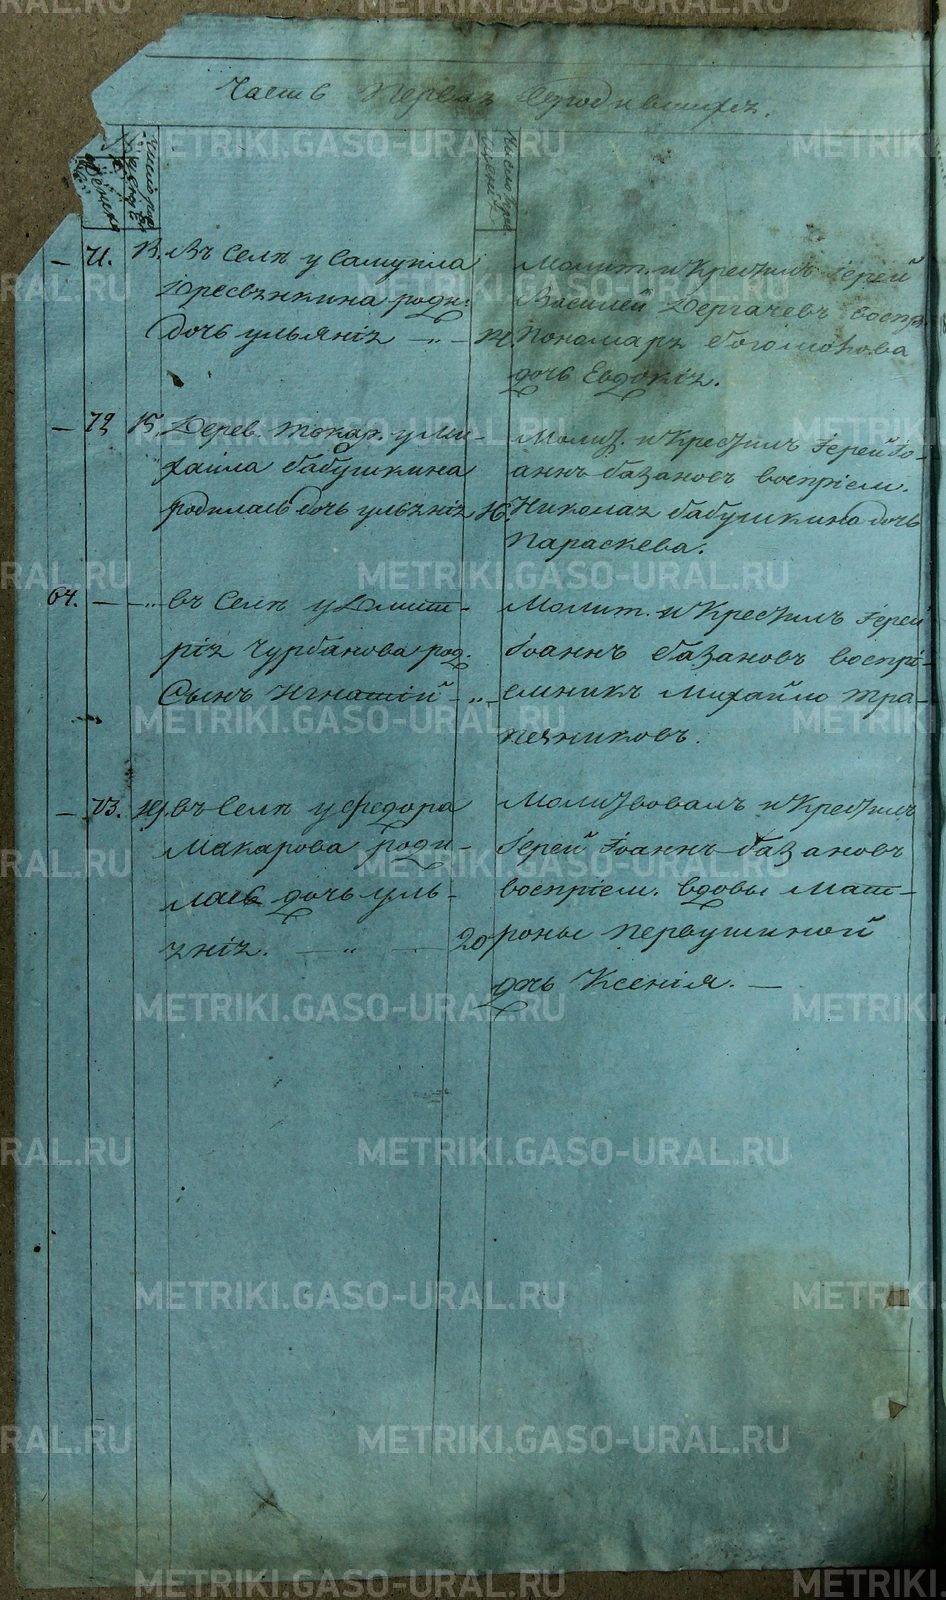 Часть Первая о родившихся.
Число рож
Число креще
71. 13. Въ Селѣ у Самуила
Дресвянкина роди.
дочь ульянія 14.
Молит. и Крестилъ Іерей
Василей Дергачевъ воспр.
Пономаря богомолова
дочь Евдокія.
72 15. Дерев. Токар. у Ми-
хайла бабушкина
родилась дочь ульянія 16.
Молит. и Крестилъ Іерей Іо-
аннъ базановъ воспріем.
Николая бабушкина дочь
Параскева.
64. въ Селѣ у Дмит-
рія Чурбанова род.
Сынъ Игнатій
Молит. и Крестилъ Іерей
Іоаннъ базановъ воспрі-
емникъ Михайло Тра-
пезниковъ.
73. 19. въ Селѣ у Федора
Макарова роди-
лась дочь уль-
янія. 20
Молитвовалъ и Крестилъ
Іерей Іоаннъ базановъ
воспріем. вдовы Мат-
роны Первушиной
дочь Ксенія.
METRIKI.GASO-URAL.RU